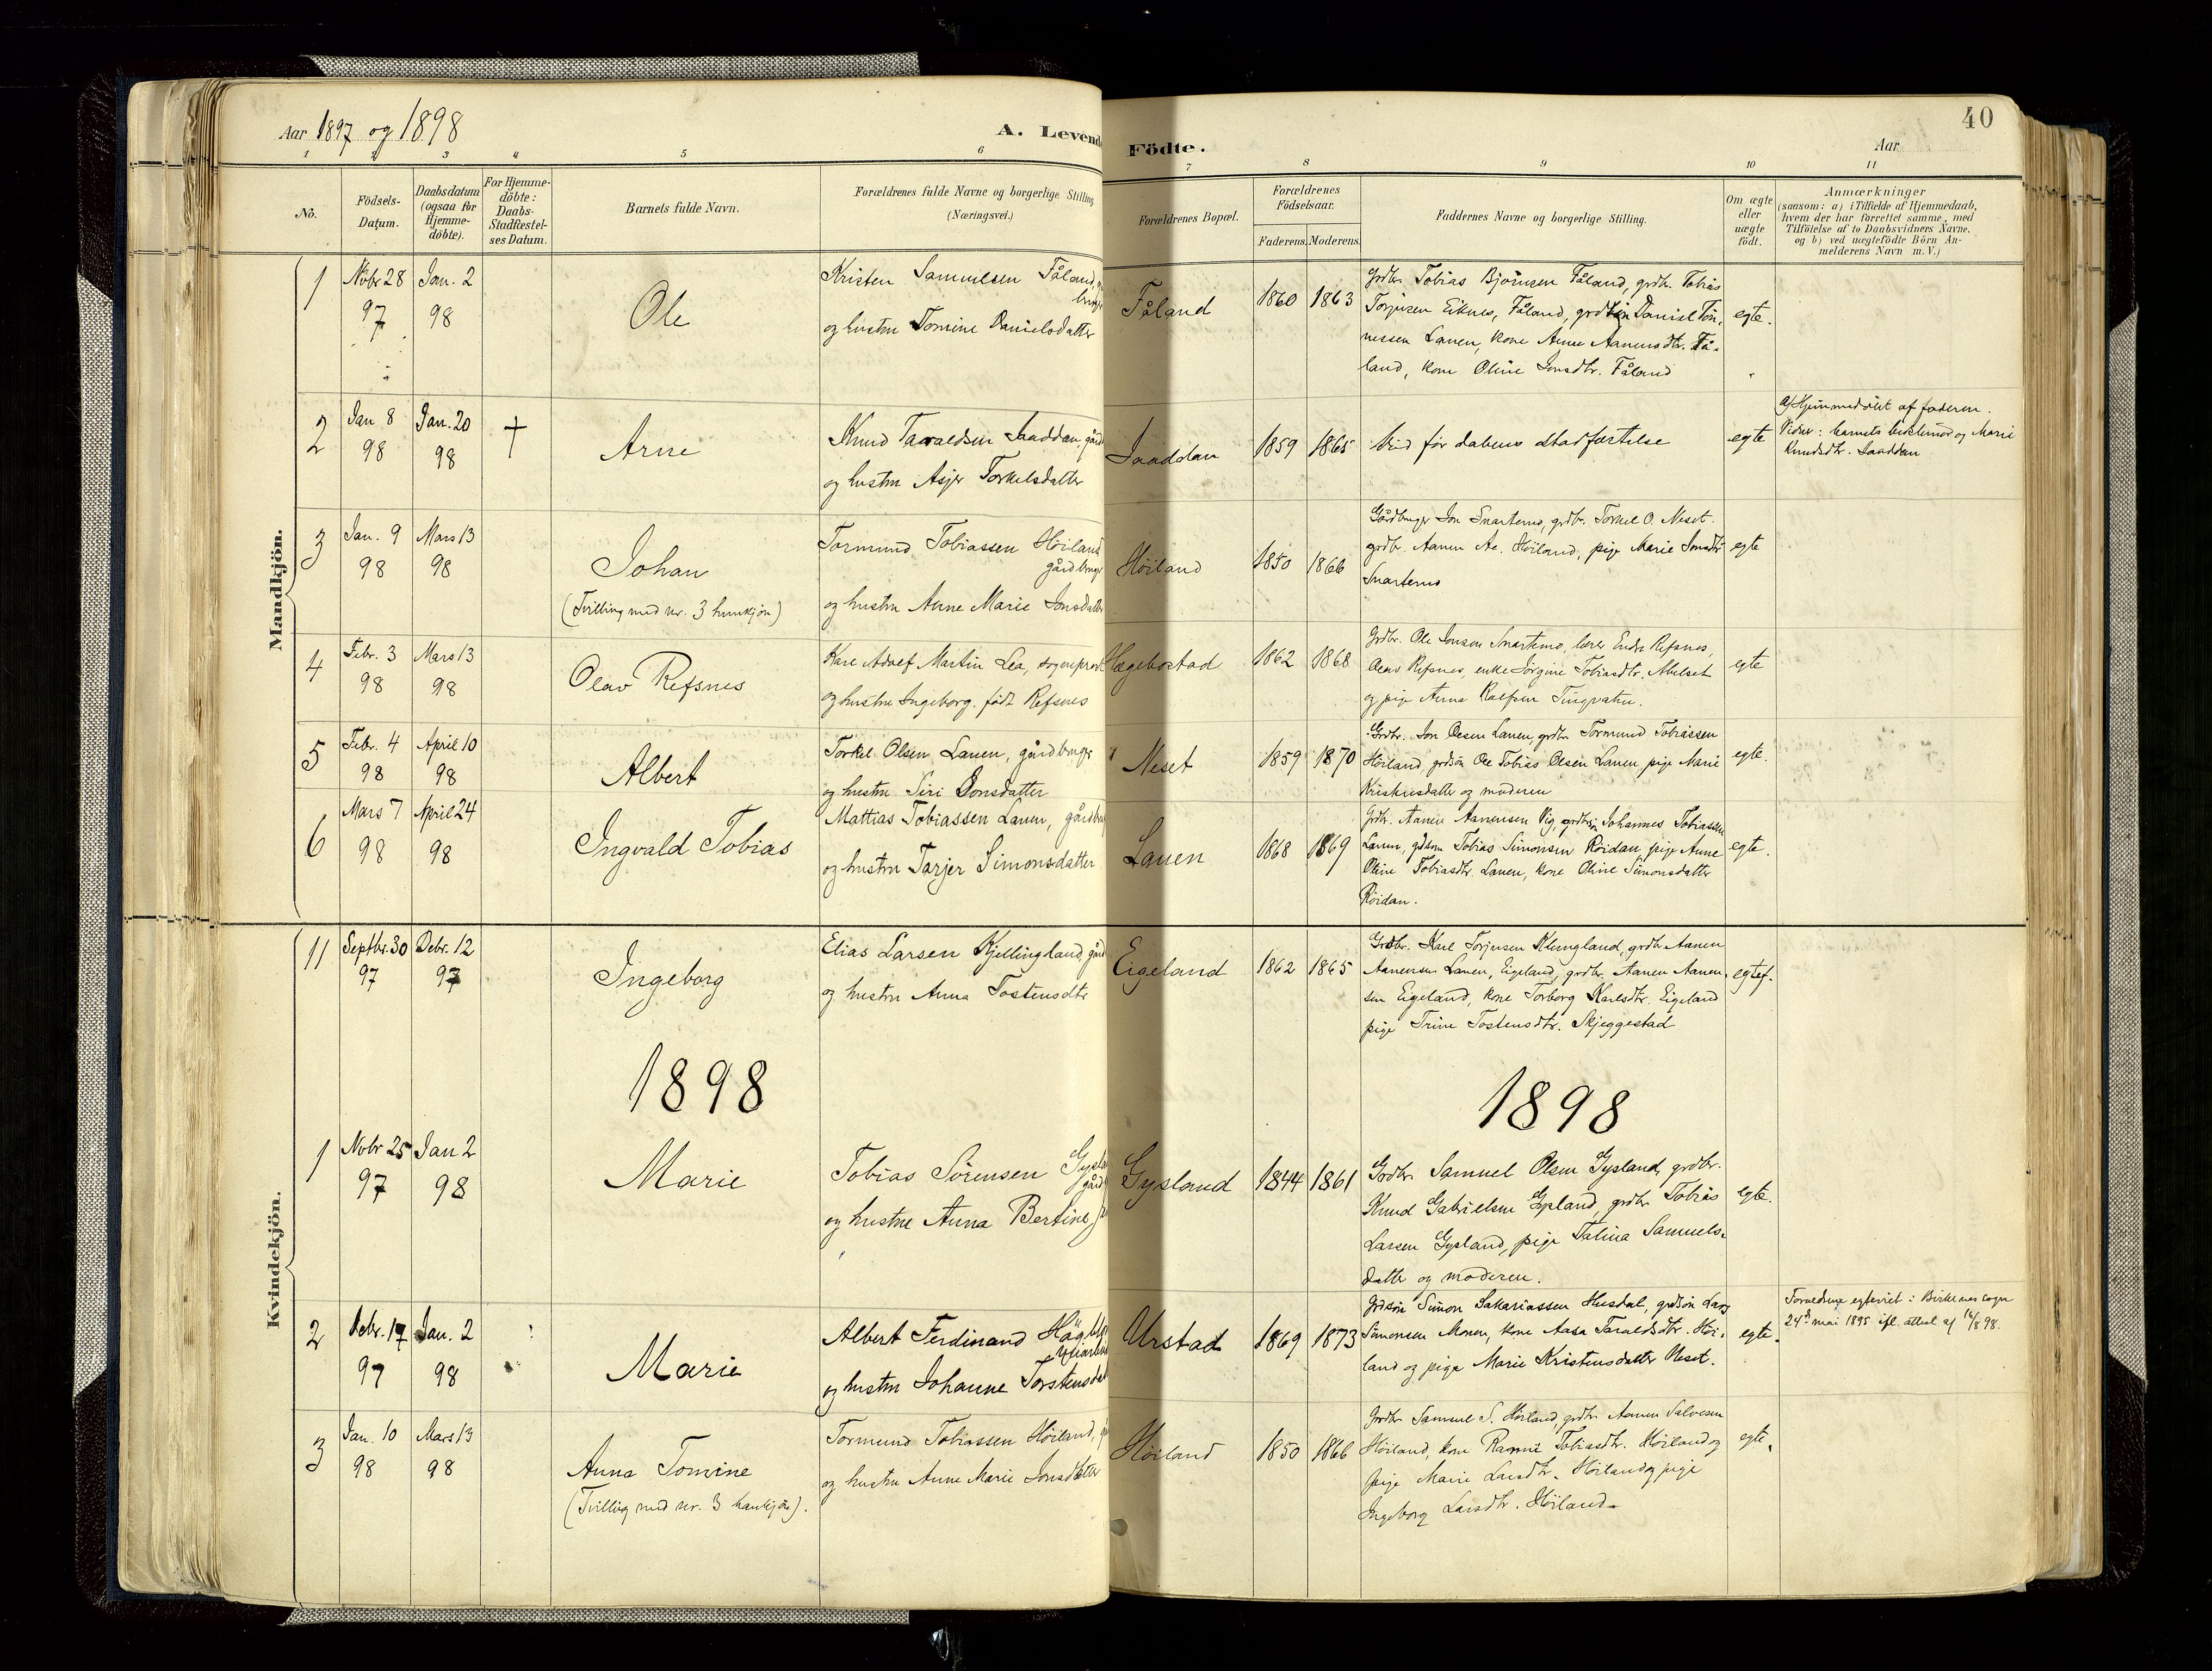 40
Aar 1897 og 1898
A. Levend
Födte.
Aar
1 2 3 4 5 6 7 8 9 10 11
No.
Födsels-
Datum.
Daabsdatum
(ogsaa for
Hjemme-
döbte).
For Hjemme-
döbte:
Daabs-
Stadfæstel-
ses Datum.
Barnets fulde Navn.
Forældrenes fulde Navne og borgerlige Stilling.
(Næringsvei.)
Forældrenes Bopæl.
Forældrenes
Födselsaar.
Faderens. Moderens.
Faddernes Navne og borgerlige Stilling.
Om ægte
eller
uægte
født.
Anmærkninger
(saasom: a) i Tilfælde af Hjemmedaab,
hvem der har forrettet samme, med
Tilföielse af to Daabsvidners Navne.
og b) ved uægtefödte Börn An-
melderens Navn m. V.)
Mandkjön.
1
Nobr 28
97
Jan. 2
98
Ole
Kristen Samuelsen Fåland,
og hustru Tomine Danielsdatter
Fåland
1860 1863
Grdbr. Tobias Bjørnsen Fåland, grdbr. Tobias
Torjusen Eiknes, Fåland, Daniel Tøn-
nessen Lauen, kone Anne Aanensdtr. Få-
land, kone Oline Jonsdtr. Fåland
egte.
2
Jan 8
98
Jan. 20
98
†
Arne
Knud Taraldsen Laaddan, gård
og hustru Asjer Torkelsdatter
Laaddan
1859 1865
død før dabens stadfæstelse
egte
Hjemmedøbt af faderen.
Vidner: barnets bedstemor og Marie
Knudsdtr. Laaddan
3
Jan. 9
98
Mars 13
98
Johan
(Tvilling med nr. 3 hunkjøn)
Tormund Tobiassen Høiland
gårdbruger
og hustru Anne Marie Jonsdatter
Høiland
1850 1866
Gårdbruger Jon Snartemo, grdbr. Torkel O. Neset.
grdbr. Aanen Aa. Høiland, pige Marie Jonsdtr
Snartemo
egte
4
Febr. 3
98
Mars 13
98
Olav Refsnes
Kare Adolf Martin Lea, sogneprest
og hustru Ingeborg. født Refsnes
Hægebostad
1862 1868
Grdbr. Ole Jonsen Snartemo, lærer Endre Refsnes,
Olav Refsnes, enke Jørgine Tobiasdtr. Abelset
og pige Anna Rolfsen Tingvatn.
egte
5
Febr. 4
98
April 10
98
Albert
Torkel Olsen Lauen, gårdbruger
og hustru Siri Jonsdatter
Neset
1859 1870
Grdbr. Jon Olsen Lauen, grdbr. Tormund Tobiassen
Høiland, grdsøn Ole Tobias Olsen Lauen, pige Marie
Kristensdatter og moderen
egte.
6
Mars 7
98
April 24
98
Ingvald Tobias
Mattias Tobiassen Lauen, gårdbru
og hustru Tarjer Simonsdatter
Lauen
1868 1869
Grdbr. Aanen Aanensen Vig, grdbr. Johannes Tobiassen
Lauen, gdsøn Tobias Simonsen Røidan, pige Anne
Oline Tobiasdtr. Lauen, kone Oline Simonsdatter
Røidan.
egte.
Kvindekjön.
11
Septbr. 30
97
Debr. 12
97
Ingeborg
Elias Larsen Kjellingland, gård
og hustru Anna Tostensdtr
Eigeland
1862 1865
Grdbr. Karl Torjusen Klungland, grdbr Aanen
Aanensen Lauen, Eigeland, grdbr. Aanen Aanen-
sen Eigeland, kone Torborg Karlsdtr. Eigeland
pige Trine Tostensdtr. Skjeggestad
egtef.
1898
1898
1
Nobr 25
97
Jan 2
98
Marie
Tobias Sørensen Gysla
gård
og hustru Anna Bertine
Gysland
1844 1861
Grdbr. Samuel Olsen Gysland, grdbr.
Knud Gabrielsen Gysland, grdbr Tobias
Larsen Gysland, pige Talina Samuels-
datter og moderen.
egte.
2
Debr. 17
97
Jan. 2
98
Marie
Albert Ferdinand
og hustru Johanne Torstensdat
Urstad
1869 1873
Grdsøn Simon Sakariassen Husdal, grdsøn Lars
Simonsen Monen, kone Aasa Taraldsdtr. Høi-
land og pige Marie Kristensdatter Neset.
egte.
Forældrene egteviet i Birkenes sogn
24de mai 1895 ifl. attest af 16/8 98.
3
Jan. 10
98
Mars 13
98
Anna Tomine
(Tvilling med nr. 3 hankjøn).
Tormund Tobiassen Høiland,
og hustru Anne Marie Jonsdatter
Høiland
1850 1866
Grdbr Samuel S. Høiland, grdbr Aanen Salvesen
Høiland, kone Tobiasdtr. Høiland og
pige Marie Larsdtr. Høiland og pige
Ingeborg Larsdtr. Høiland
egte.